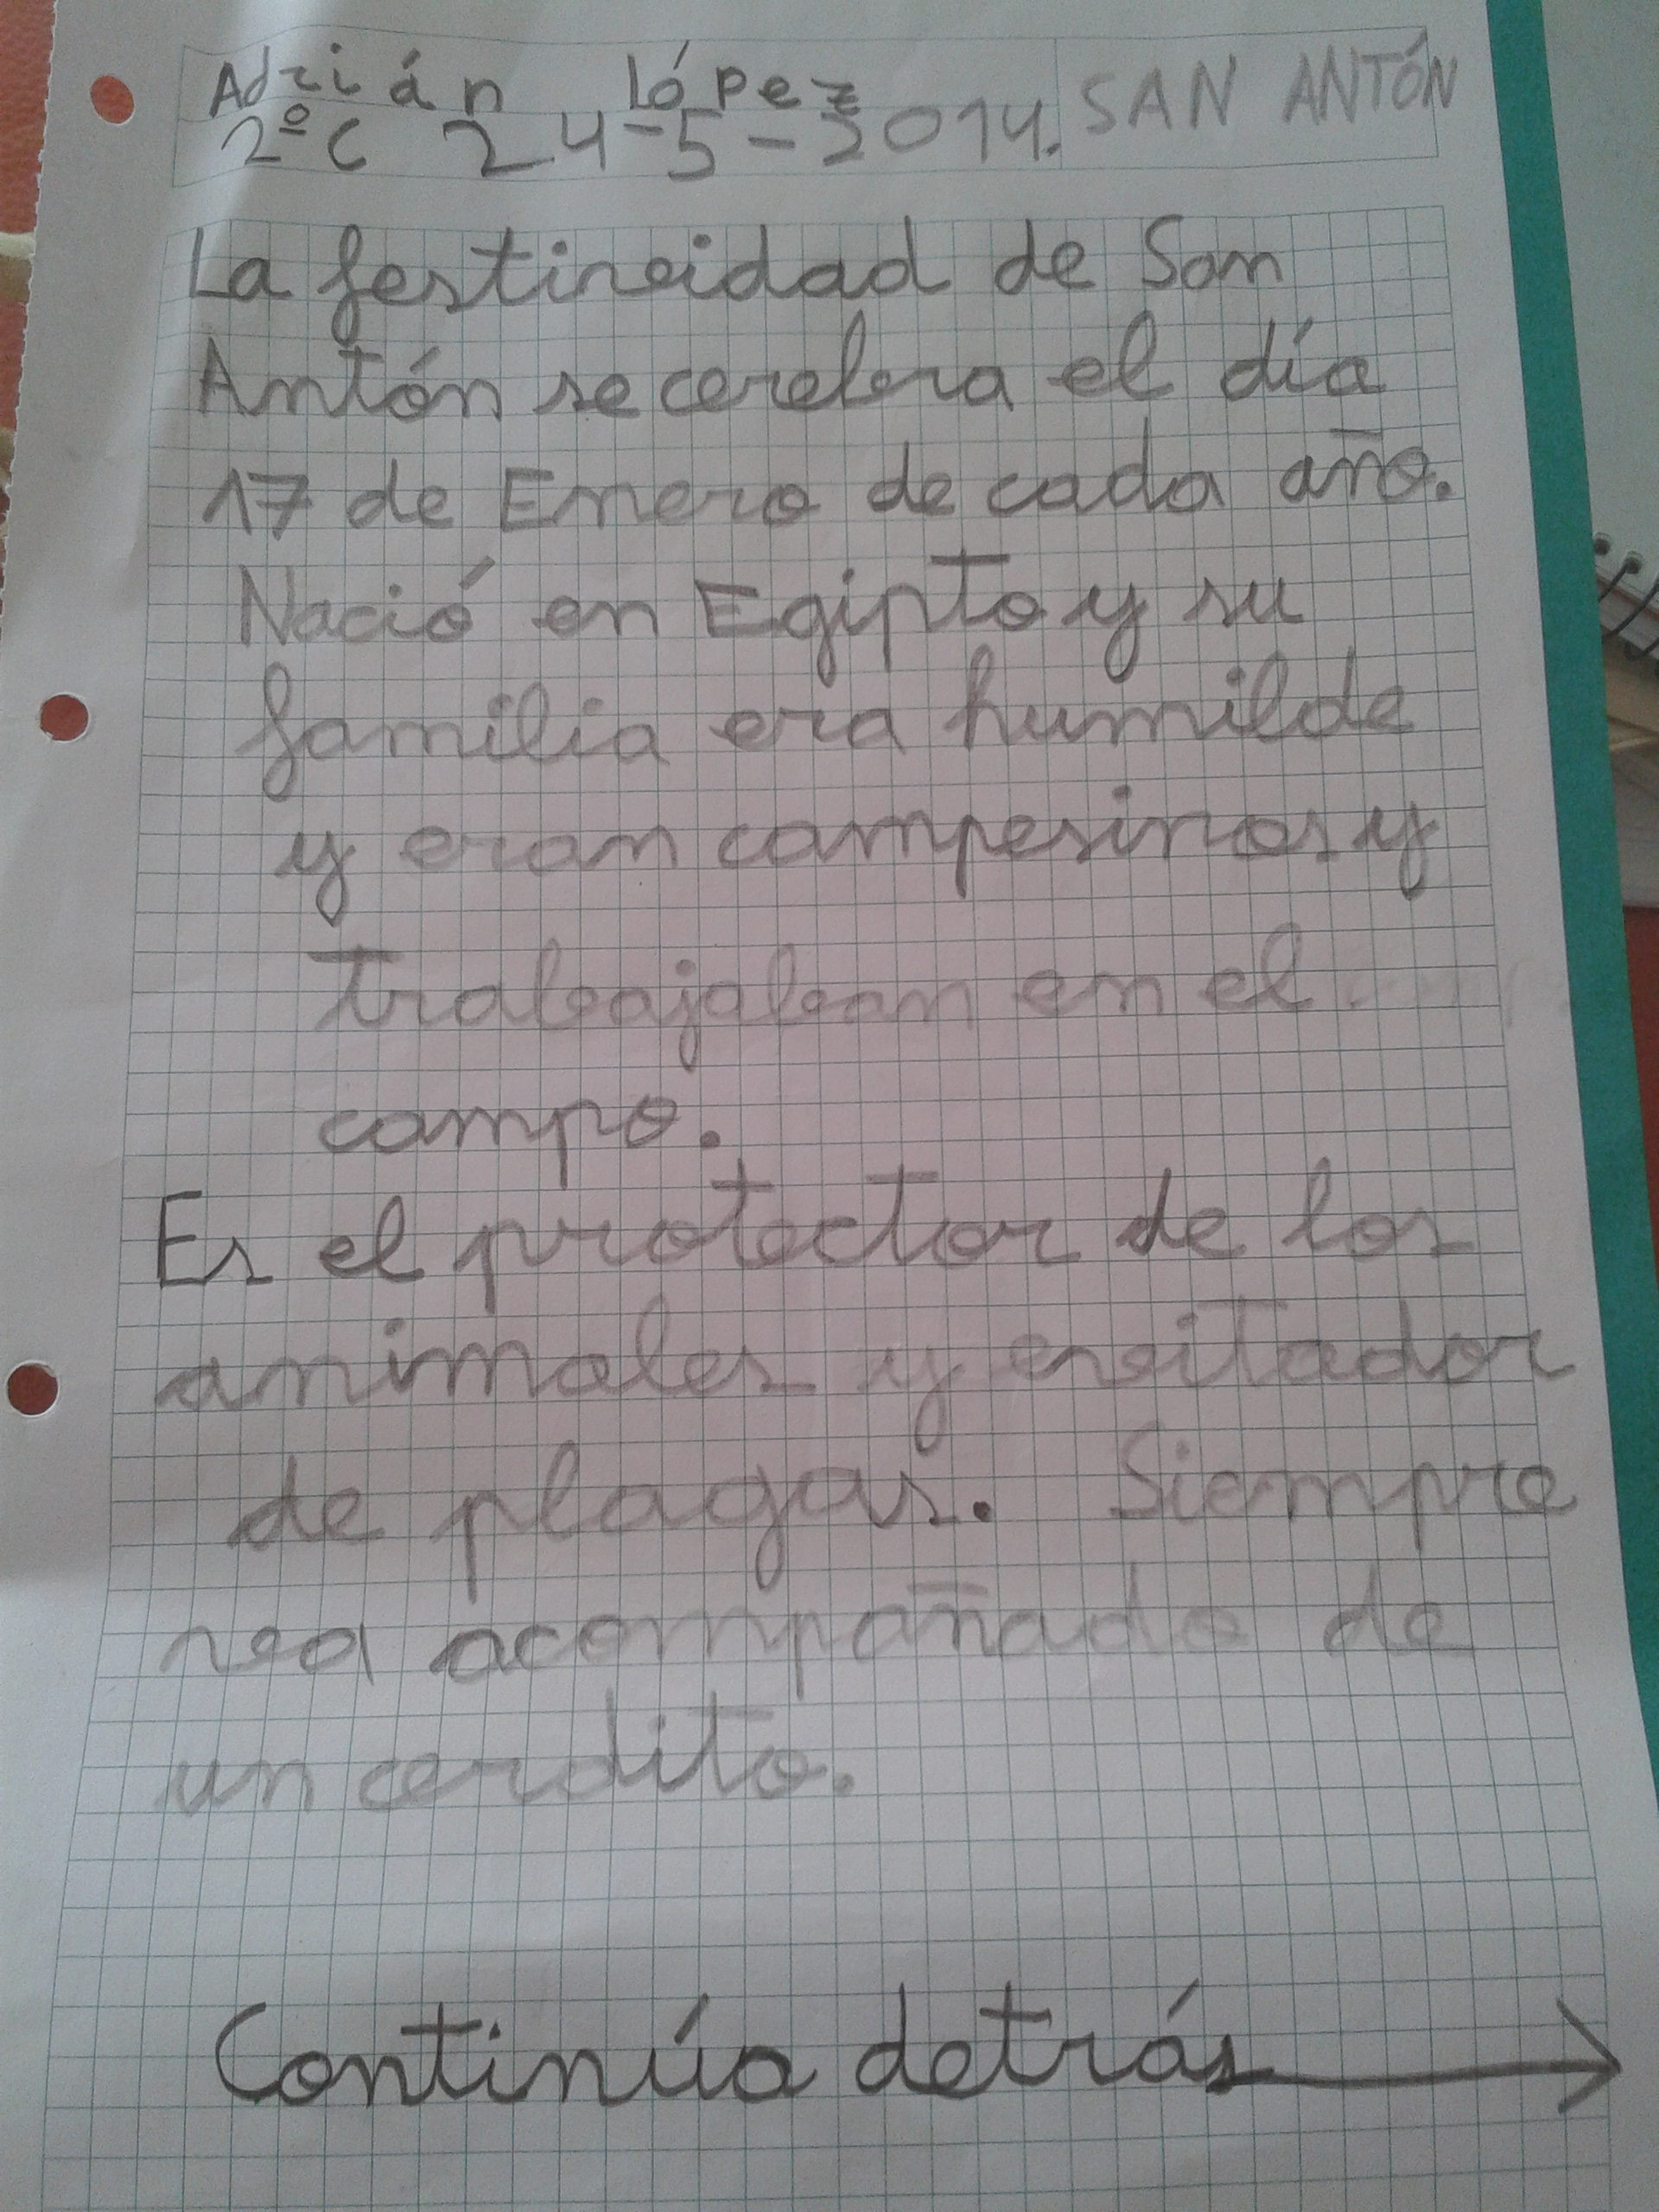 Adrián López
2º C 24-5-2014. SAN ANTÓN
La festividad de San
Antón se cerebra el día
17 de Enero de cada año.
Nació en Egipto y su
familia era humilde
y eran campesinos y
trabajaban en el
campo.
Es el protector de los
animales y evitador
de plagas. Siempre
va acompañado de
un cerdito.
Continúa detrás